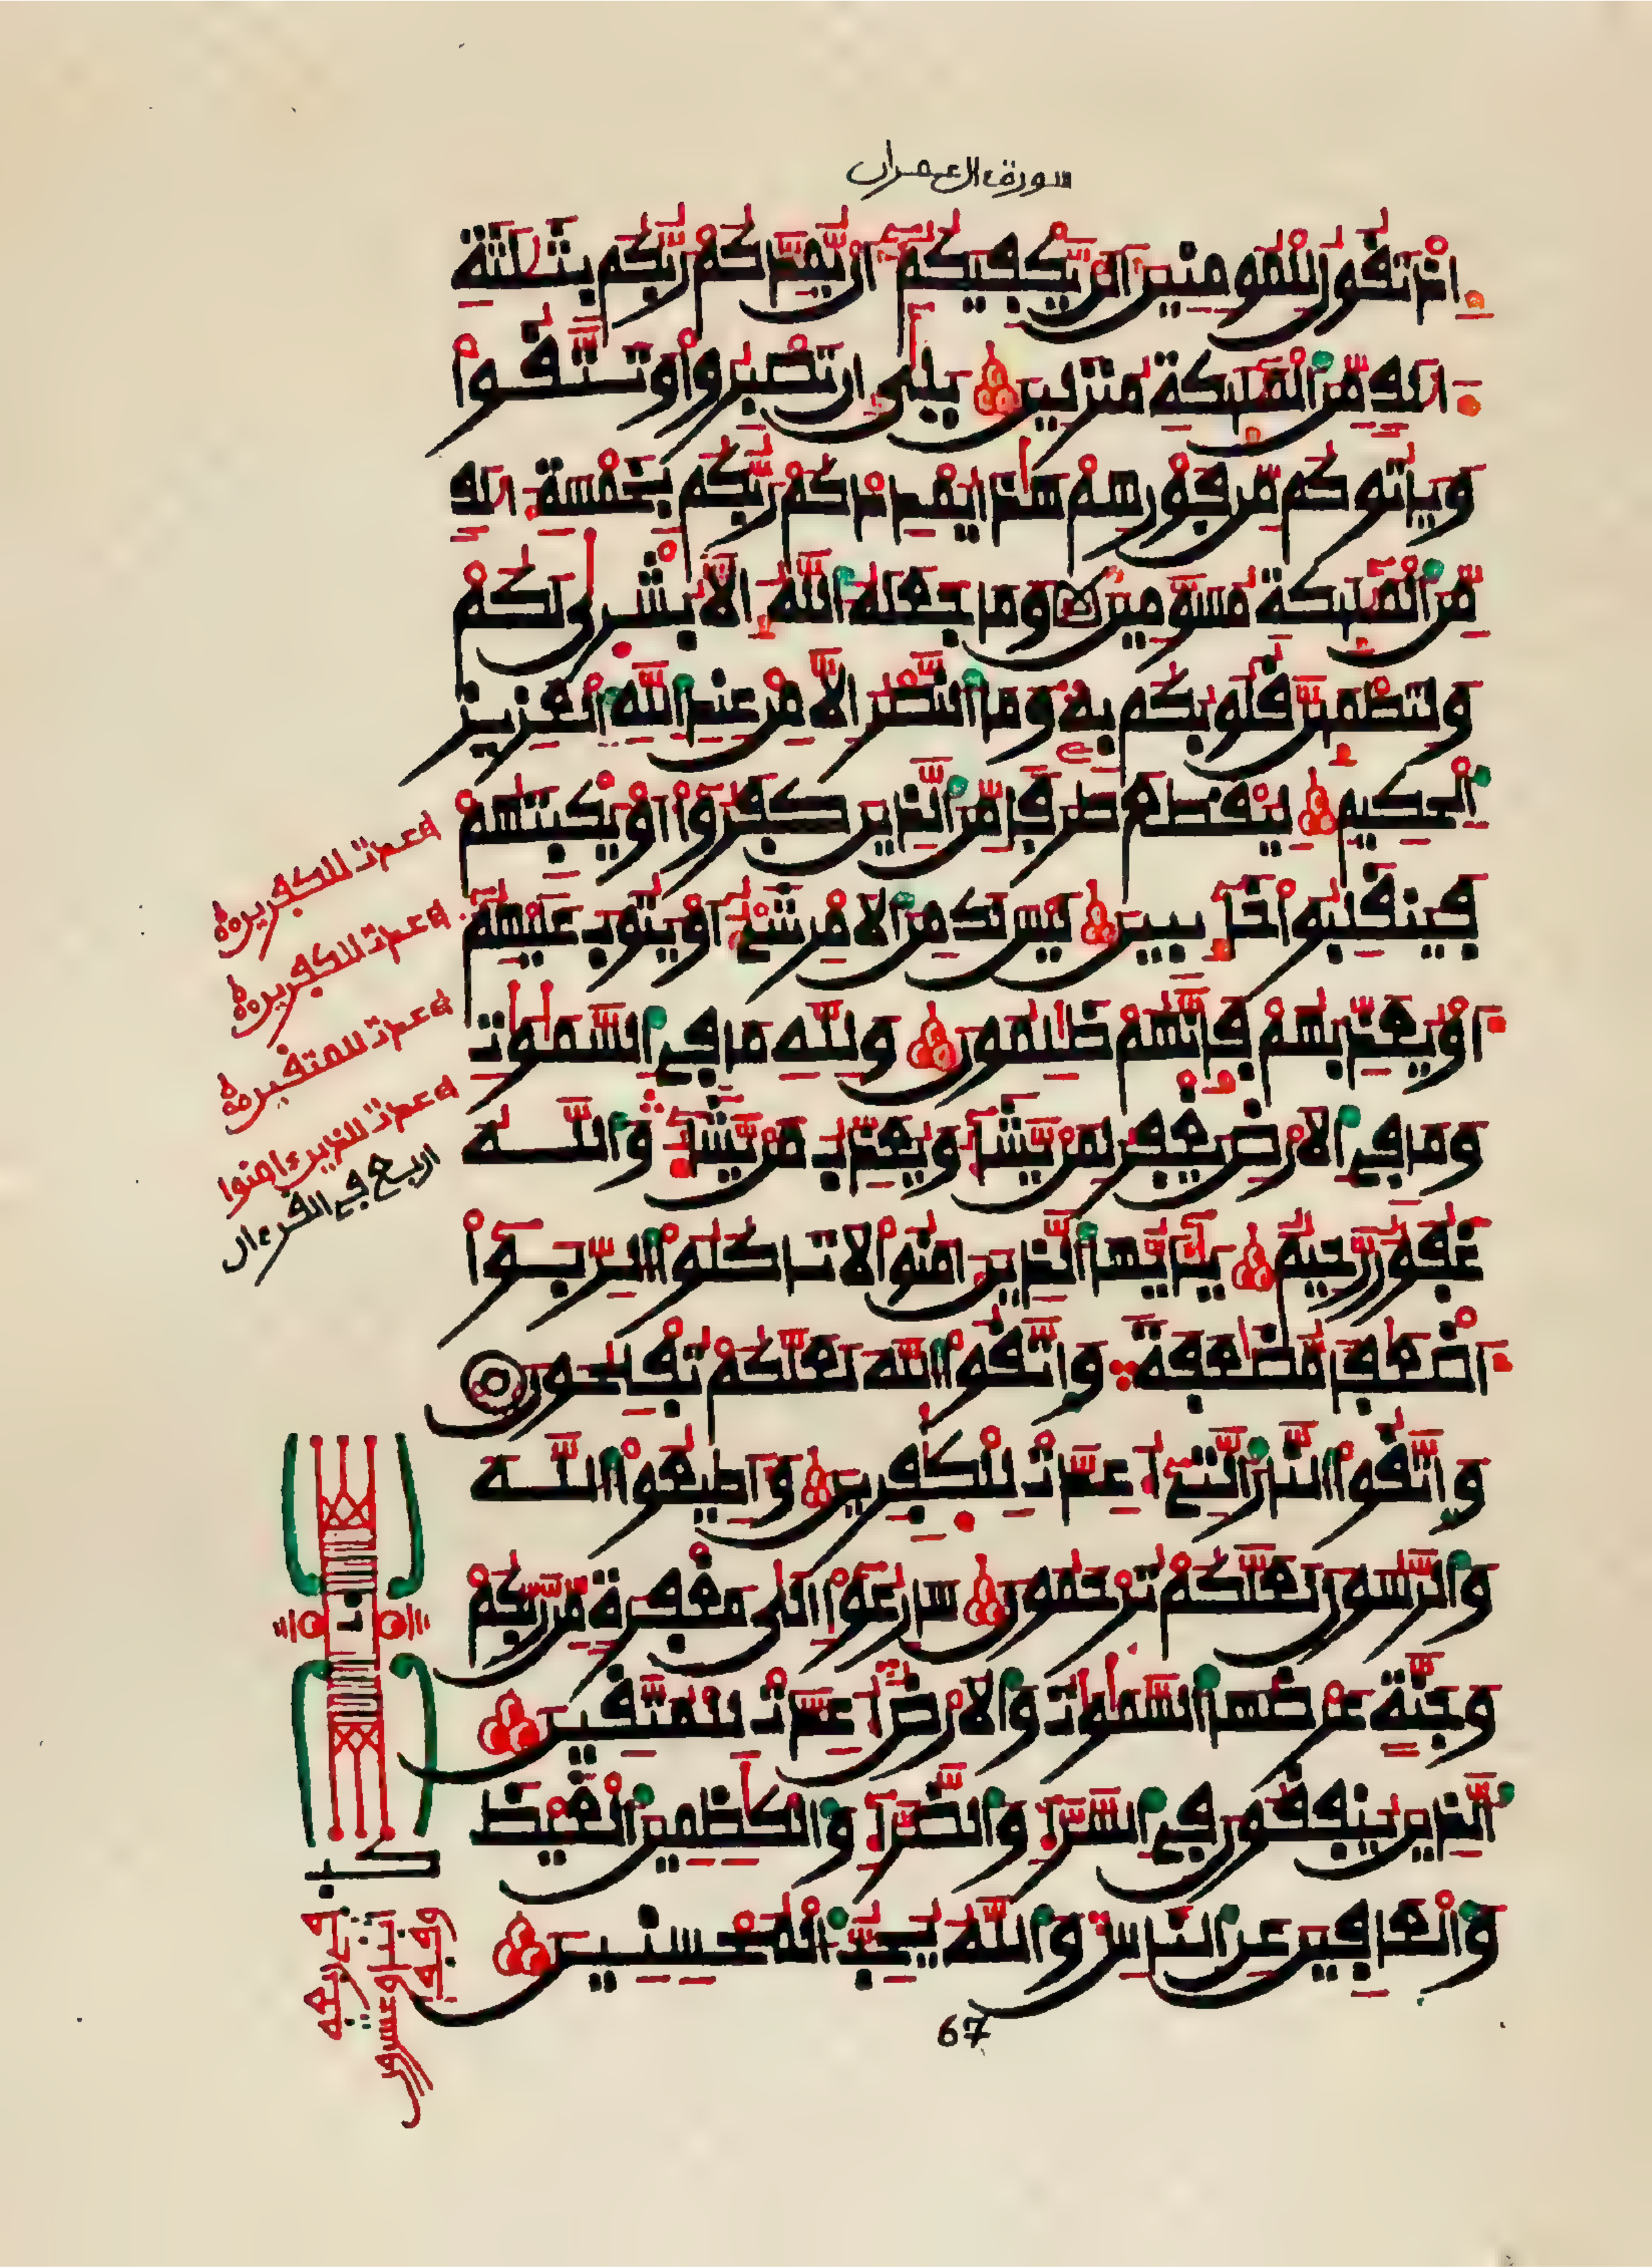 سورة ءال عمران
إِذْ تَقُولُ لِلْمُومِنِينَ أَلَنْ يَّكْفِيَكُمْ أَنْ يُّمِدَّكُمْ رَبُّكُم بِثَلَٰثَةِ
ءَالَٰفٍ مِّنَ ٱلْمَلَٰٓئِكَةِ مُنزَلِينَ بَلَىٰ إِن تَصْبِرُواْ وَتَتَّقُواْ
وَيَاتُوكُم مِّن فَوْرِهِمْ هَٰذَا يُمْدِدْكُمْ رَبُّكُم بِخَمْسَةِ ءَالَٰفٍ
مِّنَ ٱلْمَلَٰٓئِكَةِ مُسَوَّمِينَ وَمَا جَعَلَهُ ٱللَّهُ إِلَّا بُشْرَىٰ لَكُمْ
وَلِتَطْمَئِنَّ قُلُوبُكُم بِهِۦ وَمَا ٱلنَّصْرُ إِلَّا مِنْ عِندِ ٱللَّهِ ٱلْعَزِيزِ
ٱلْحَكِيمِ لِيَقْطَعَ طَرَفًا مِّنَ ٱلَّذِينَ كَفَرُوٓاْ أَوْ يَكْبِتَهُمْ
فَيَنقَلِبُواْ خَآئِبِينَ لَيْسَ لَكَ مِنَ ٱلَامْرِ شَےْءٌ أَوْ يَتُوبَ عَلَيْهِمُۥٓ
أَوْ يُعَذِّبَهُمْ فَإِنَّهُمْ ظَٰلِمُونَ وَلِلَّهِ مَا فِے ٱلسَّمَٰوَٰتِ
وَمَا فِے ٱلَارْضِ يَغْفِرُ لِمَنْ يَّشَآءُ وَيُعَذِّبُ مَنْ يَّشَآءُ وَٱللَّهُ
غَفُورٌ رَّحِيمٌ يَٰٓأَيُّهَا ٱلَّذِينَ ءَامَنُواْ لَا تَاكُلُواْ ٱلرِّبَوٰٓاْ
أَضْعَٰفًا مُّضَٰعَفَةً وَٱتَّقُواْ ٱللَّهَ لَعَلَّكُمْ تُفْلِحُونَ
وَٱتَّقُواْ ٱلنَّارَ ٱلَّتِےٓ أُعِدَّتْ لِلْكَٰفِرِينَ وَأَطِيعُواْ ٱللَّهَ
وَٱلرَّسُولَ لَعَلَّكُمْ تُرْحَمُونَ سَارِعُوٓاْ إِلَىٰ مَغْفِرَةٍ مِّن رَّبِّكُمْ
وَجَنَّةٍ عَرْضُهَا ٱلسَّمَٰوَٰتُ وَٱلَارْضُ أُعِدَّتْ لِلْمُتَّقِينَ
ٱلَّذِينَ يُنفِقُونَ فِے ٱلسَّرَّآءِ وَٱلضَّرَّآءِ وَٱلْكَٰظِمِينَ ٱلْغَيْظَ
وَٱلْعَافِينَ عَنِ ٱلنَّاسِ وَٱللَّهُ يُحِبُّ ٱلْمُحْسِنِينَ
67
اعدت للكفرين
اعدت للكفرين
اعدت للمتقين
اعدت للذين ءامنوا
اربع في القرءان
كب